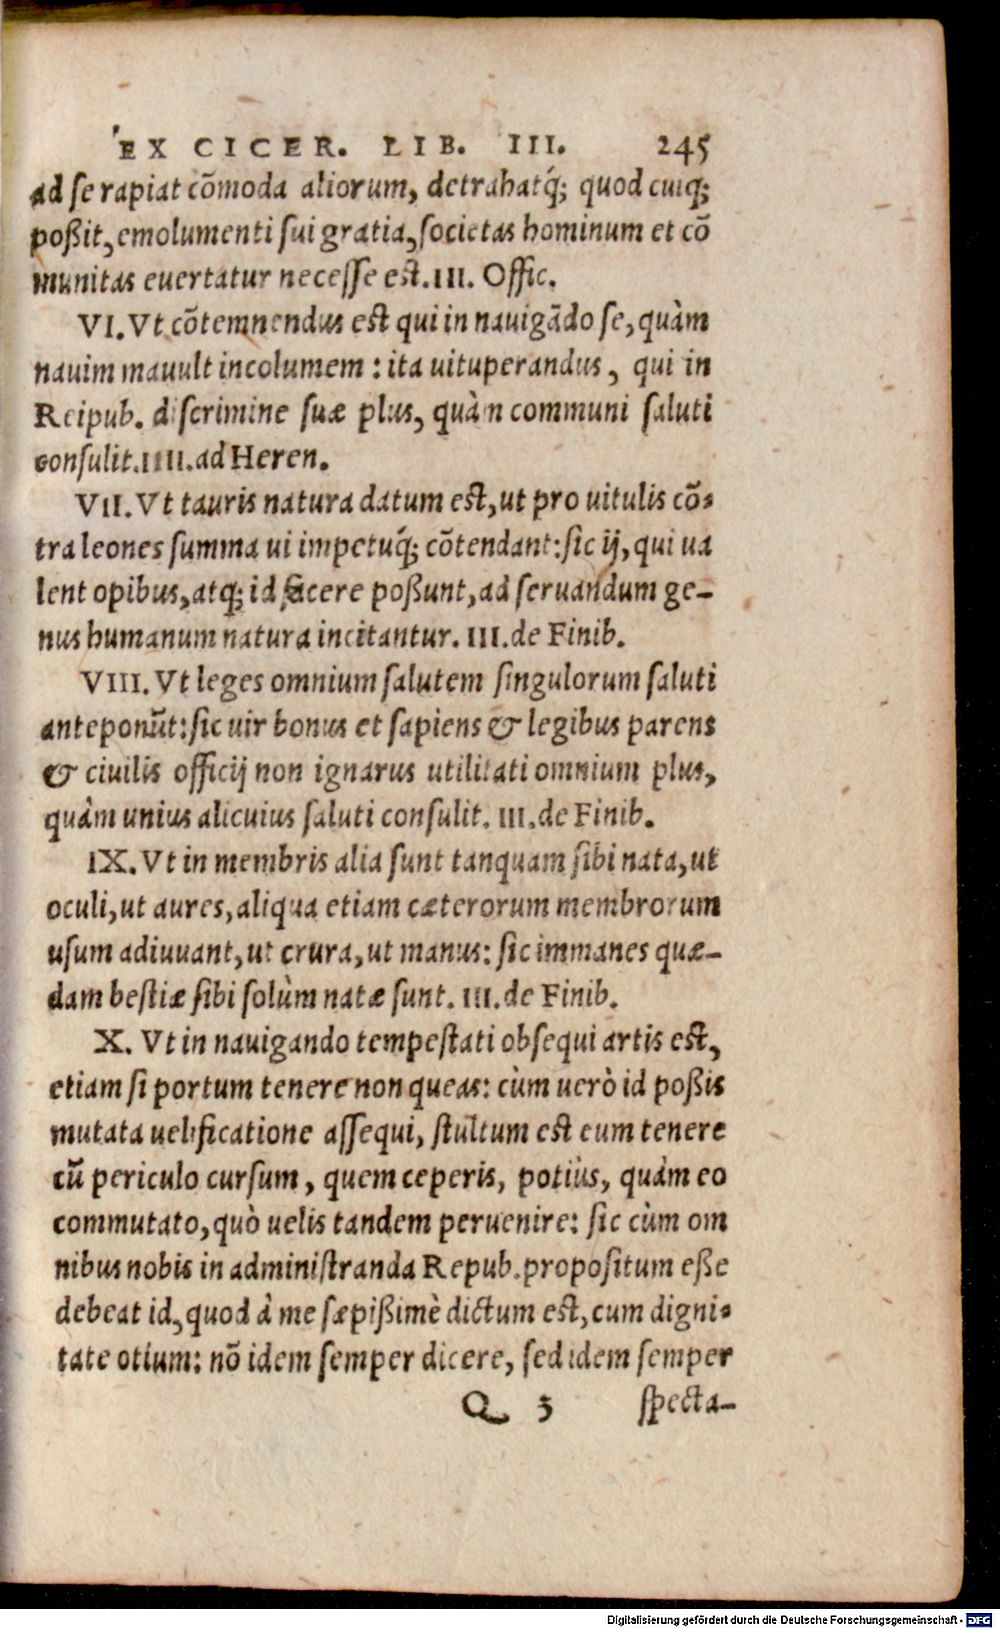 EX CICER. LIB. III. 245
ad se rapiat cõmoda aliorum, detrahatq́; quod cuiq;
poßit, emolumenti sui gratia, societas hominum et cõ
munitas euertatur necesse est. III. Offic.
VI. Vt cõtemnendus est qui in nauigãdo se, quàm
nauim mauult incolumem : ita uituperandus, qui in
Reipub. discrimine suæ plus, quàm communi saluti
consulit. IIII. ad Heren.
VII. Vt tauris natura datum est, ut pro uitulis cõ-
tra leones summa ui impetuq́; cõtendant: sic ij, qui ua
lent opibus, atq; id facere poßunt, ad seruandum ge-
nus humanum natura incitantur. III. de Finib.
VIII. Vt leges omnium salutem singulorum saluti
anteponũt: sic uir bonus et sapiens & legibus parens
& ciuilis officij non ignarus utilitati omnium plus,
quàm unius alicuius saluti consulit. III. de Finib.
IX. Vt in membris alia sunt tanquam sibi nata, ut
oculi, ut aures, aliqua etiam cæterorum membrorum
usum adiuuant, ut crura, ut manus: sic immanes quæ-
dam bestiæ sibi solùm natæ sunt. III. de Finib.
X. Vt in nauigando tempestati obsequi artis est,
etiam si portum tenere non queas: cùm uerò id poßis
mutata uelificatione assequi, stultum est eum tenere
cũ periculo cursum, quem ceperis, potiùs, quàm eo
commutato, quò uelis tandem peruenire: sic cùm om
nibus nobis in administranda Repub. propositum eße
debeat id, quod à me sæpißimè dictum est, cum digni-
tate otium: nõ idem semper dicere, sed idem semper
Q 3 specta-
Digitalisierung gefördert durch die Deutsche Forschungsgemeinschaft - DFG